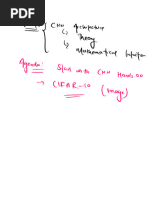 CNN Architecture
↳ Theory
↳ Mathematical Intuition
Agenda:
Start with CNN Hands on
→ CIFAR-10 (Image)